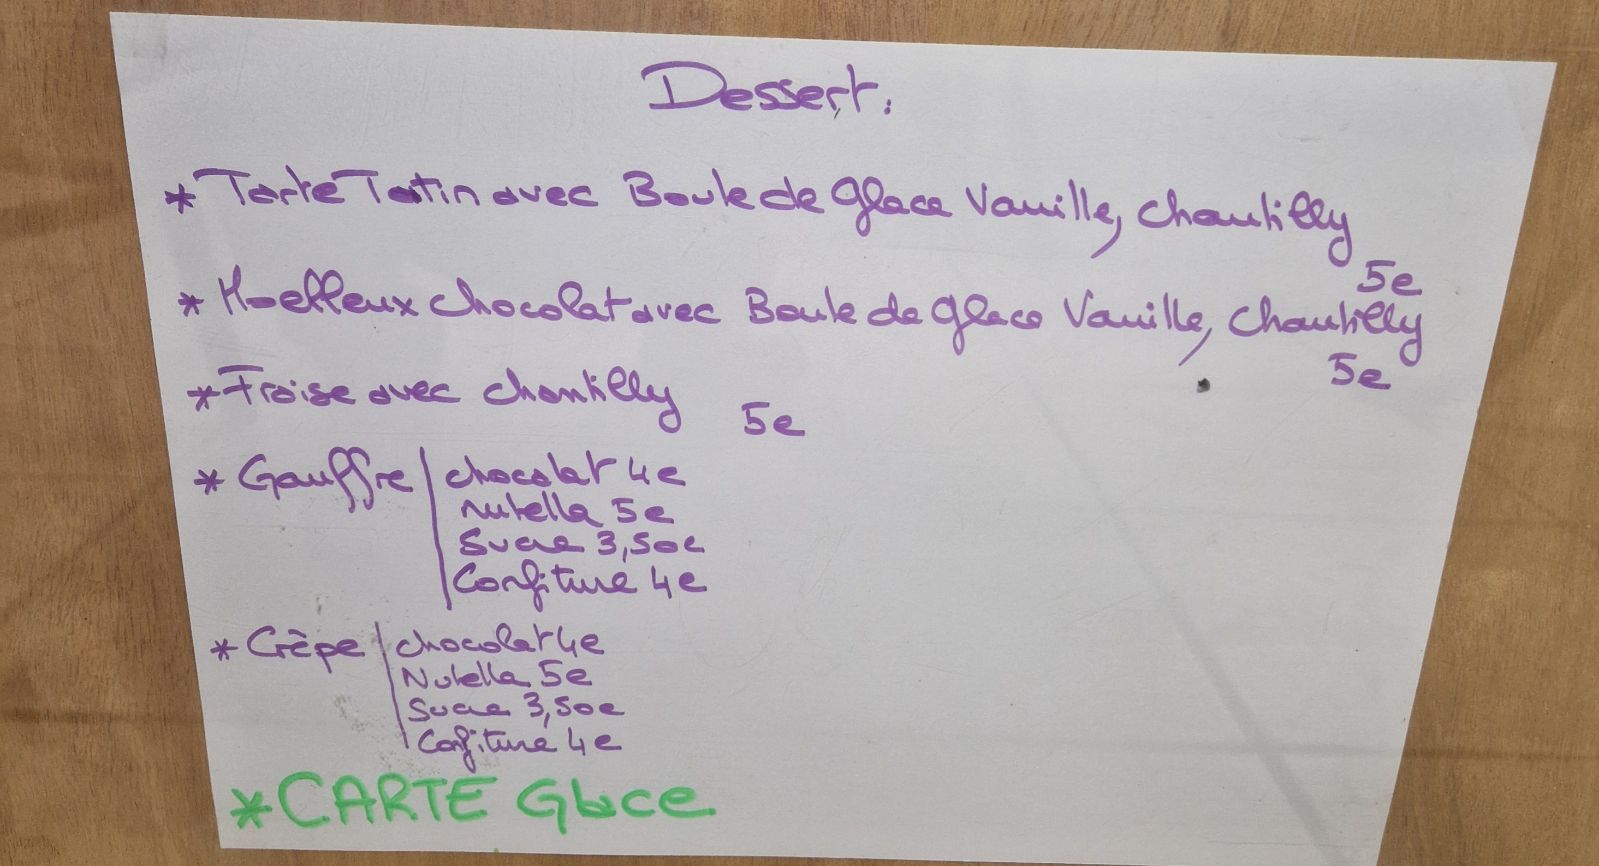 Dessert:
* Tarte Tatin avec Boule de Glace Vanille, chantilly
5e
* Moelleux chocolat avec Boule de Glace Vanille, Chantilly
5e
* Fraise avec chantilly 5e
* Gauffre | chocolat 4e
nutella 5e
Sucre 3,50e
Confiture 4e
* Crèpe | chocolat 4e
Nutella 5e
Sucre 3,50e
Confiture 4e
* CARTE Glace